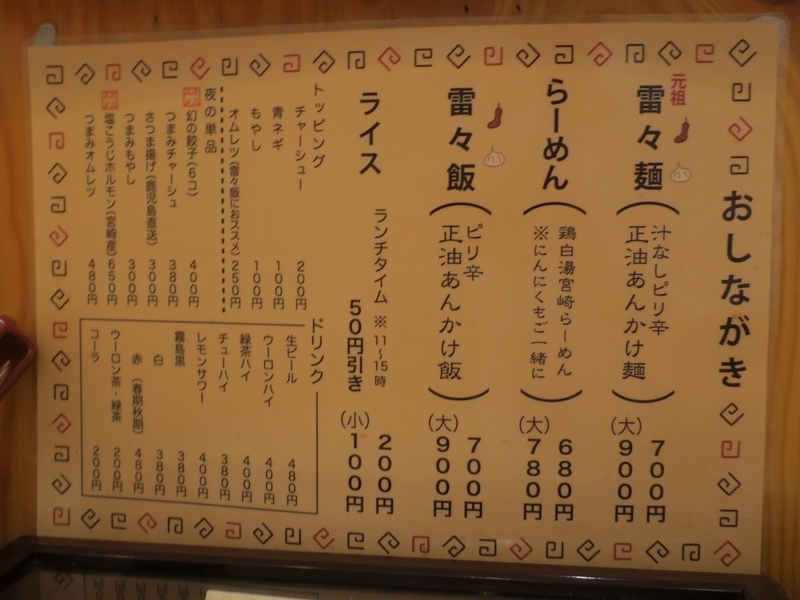 おしながき
元祖
雷々麺
(汁なしピリ辛
正油あんかけ麺)
700円
(大)900円
らーめん
(鶏白湯宮崎らーめん
※にんにくもご一緒に)
680円
(大)780円
雷々飯
(ピリ辛
正油あんかけ飯)
700円
(大)900円
ライス
200円
(小)100円
ランチタイム ※11〜15時
50円引き
トッピング
チャーシュー 200円
青ネギ 100円
もやし 100円
オムレツ(雷々飯におススメ) 250円
夜の単品
幻の餃子(6コ) 400円
つまみチャーシュ 380円
さつま揚げ(鹿児島直送) 300円
つまみもやし 300円
塩こうじホルモン(宮崎産) 650円
つまみオムレツ 480円
ドリンク
生ビール 480円
ウーロンハイ 400円
緑茶ハイ 400円
チューハイ 380円
レモンサワー 400円
霧島黒 380円
白 380円
赤(春期秋期) 480円
ウーロン茶・緑茶 200円
コーラ 200円